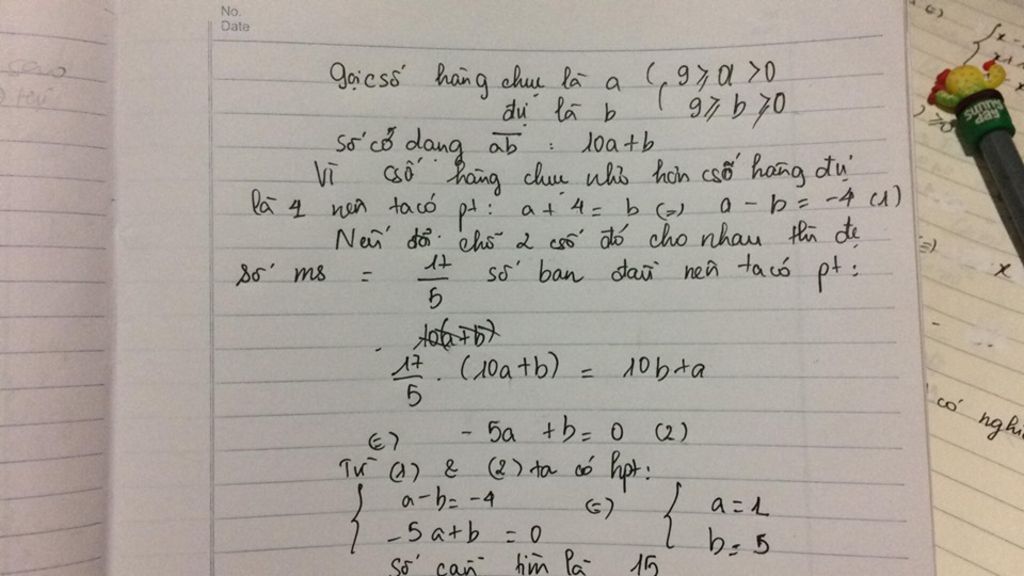 No.
Date
gọi csố hàng chục là a ( 9 ⩾ a > 0
đvị là b ( 9 ⩾ b ⩾ 0
số có dạng ab : 10a+b
Vì csố hàng chục nhỏ hơn csố hàng đvị
là 4 nên ta có pt: a + 4 = b (=) a - b = -4 (1)
Nếu đổi chỗ 2 csố đó cho nhau thì đc
số ms = 17/5 số ban đầu nên ta có pt:
10(a+b)
17/5 . (10a+b) = 10b+a
(=) - 5a + b = 0 (2)
Từ (1) & (2) ta có hpt:
{ a-b = -4 (=) { a = 1
{ -5a+b = 0 { b = 5
số cần tìm là 15
có nghi
x